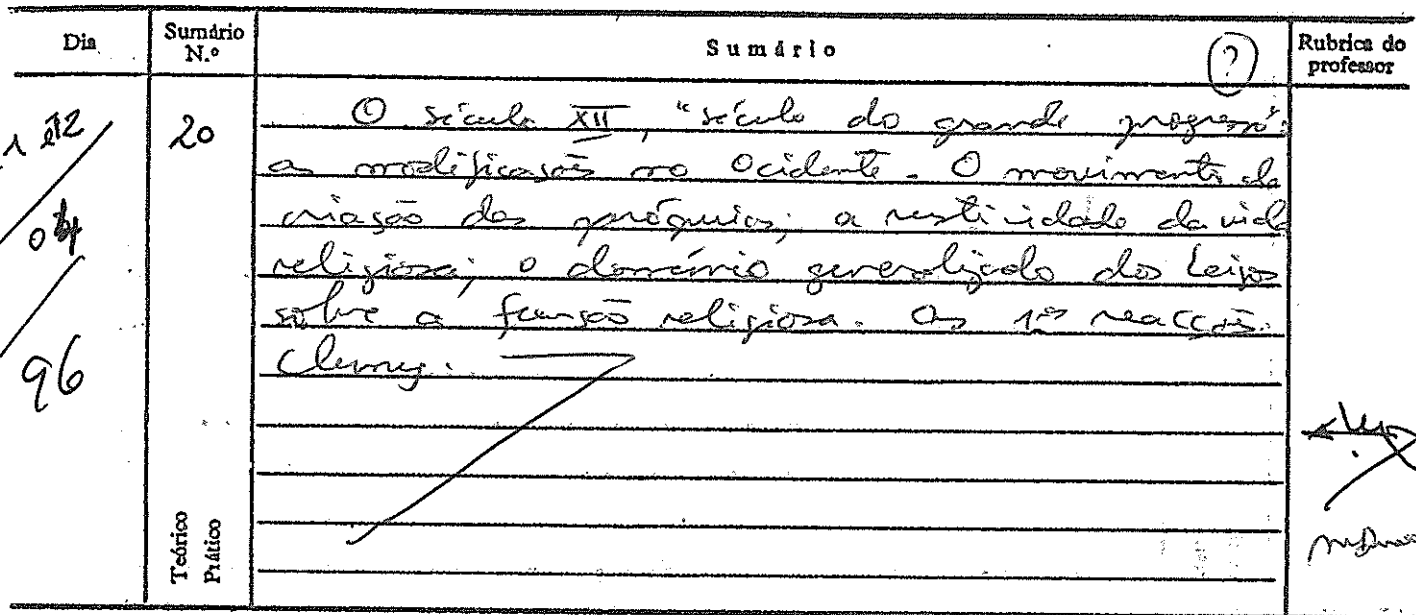 Dia
Sumário N.º
Sumário
(?)
Rubrica do professor
96
20
O século XII, "século do grande progresso":
as modificações no Ocidente. O movimento da
criação das paróquias; a da vida
religiosa; o domínio generalizado dos Leigos
sobre a função religiosa. As 1ªs reacções.
Cluny.
Teórico
Prático